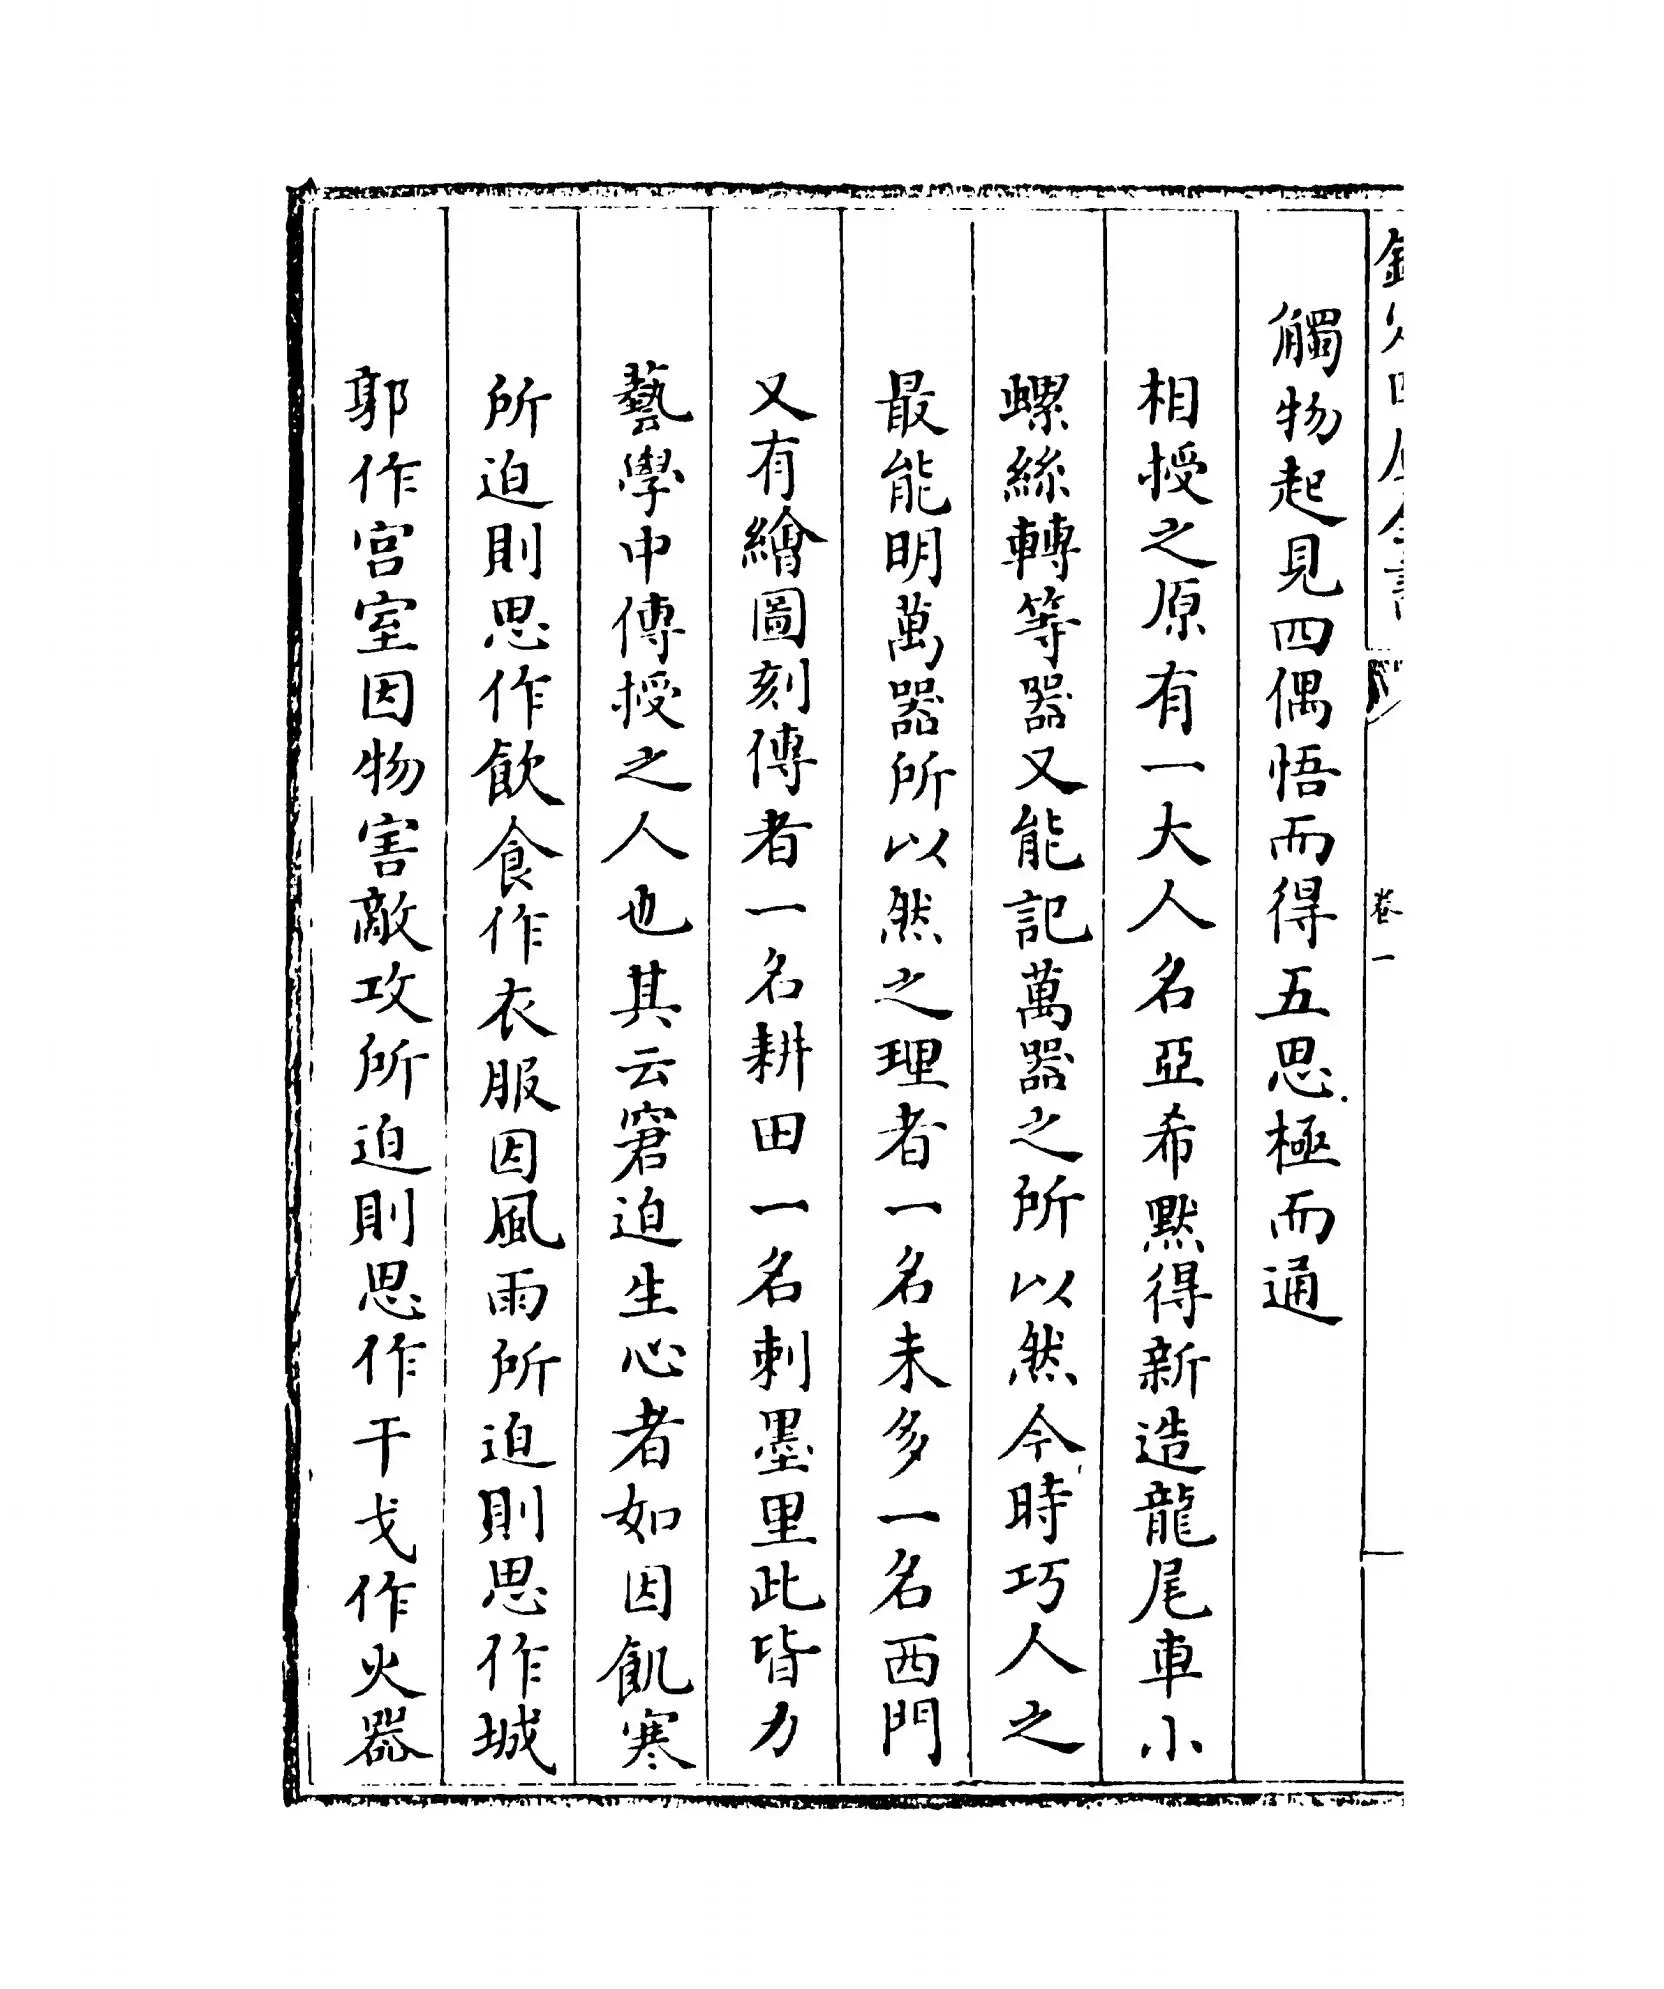 欽定四庫全書
卷一
觸物起見四偶悟而得五思極而通
相授之原有一大人名亞希默得新造龍尾車小
螺絲轉等器又能記萬器之所以然今時巧人之
最能明萬器所以然之理者一名未多一名西門
又有繪圖刻傳者一名耕田一名刺墨里此皆力
藝學中傳授之人也其云窘迫生心者如因飢寒
所迫則思作飲食作衣服因風雨所迫則思作城
郭作宫室因物害敵攻所迫則思作干戈作火器